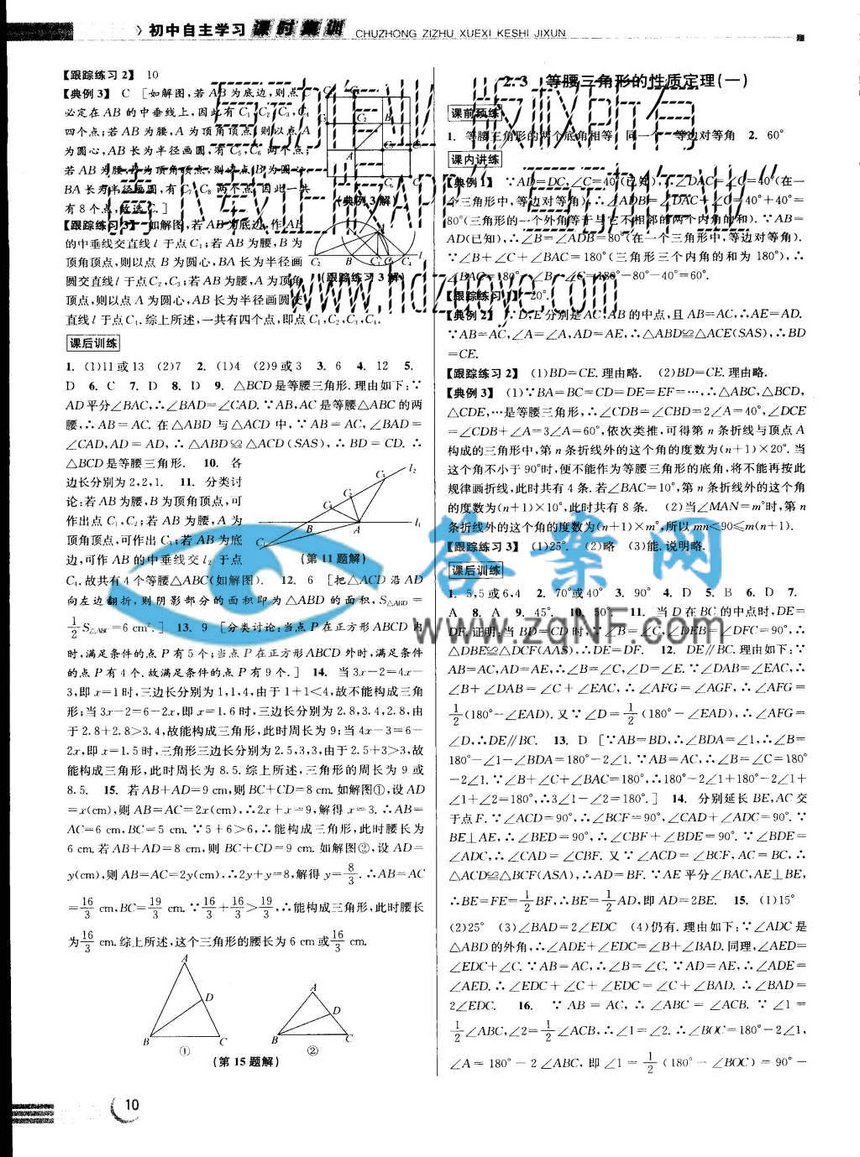 初中自主学习 课时集训 CHUZHONG ZIZHU XUEXI KESHI JIXUN
【跟踪练习2】 10
【典例3】 C [如解图,若AB为底边,则点C
必定在AB的中垂线上,因此有C₁,C₂,C₃,C₄
四个点;若AB为腰,A为顶角顶点,则以点A
为圆心,AB长为半径画圆,有C₅,C₆两个点;
若AB为腰,B为顶角顶点,则以点B为圆心,
BA长为半径画圆,有C₇,C₈两个点.因此一共
有8个点.故选C.]
(典例3解)
【跟踪练习3】 如解图,若AB为底边,作AB
的中垂线交直线l于点C₁;若AB为腰,B为
顶角顶点,则以点B为圆心,BA长为半径画
圆交直线l于点C₂,C₃;若AB为腰,A为顶角
顶点,则以点A为圆心,AB长为半径画圆交
直线l于点C₁.综上所述,一共有四个点,即点C₁,C₂,C₃,C₄.
(跟踪练习3解)
课后训练
1. (1)11或13 (2)7 2. (1)4 (2)9或3 3. 6 4. 12 5.
D 6. C 7. D 8. D 9. △BCD是等腰三角形.理由如下:∵
AD平分∠BAC,∴∠BAD=∠CAD.∵AB,AC是等腰△ABC的两
腰,∴AB=AC.在△ABD与△ACD中,∵AB=AC,∠BAD=
∠CAD,AD=AD,∴△ABD≌△ACD(SAS),∴BD=CD.∴
△BCD是等腰三角形. 10. 各
边长分别为2,2,1. 11. 分类讨
论:若AB为腰,B为顶角顶点,可
作出点C₁,C₂;若AB为腰,A为
顶角顶点,可作出C₃;若AB为底
边,可作AB的中垂线交l₂于点
C₄,故共有4个等腰△ABC(如解图). 12. 6 [把△ACD沿AD
(第11题解)
向左边翻折,则阴影部分的面积即为△ABD的面积,S△ABD=
1/2 S△ABC=6 cm².] 13. 9 [分类讨论:当点P在正方形ABCD内
时,满足条件的点P有5个;当点P在正方形ABCD外时,满足条件
的点P有4个.故满足条件的点P有9个.] 14. 当3x-2=4x-
3,即x=1时,三边长分别为1,1,4,由于1+1<4,故不能构成三角
形;当3x-2=6-2x,即x=1.6时,三边长分别为2.8,3.4,2.8,由
于2.8+2.8>3.4,故能构成三角形,此时周长为9;当4x-3=6-
2x,即x=1.5时,三角形三边长分别为2.5,3,3,由于2.5+3>3,故
能构成三角形,此时周长为8.5.综上所述,三角形的周长为9或
8.5. 15. 若AB+AD=9 cm,则BC+CD=8 cm.如解图①,设AD
=x(cm),则AB=AC=2x(cm),∴2x+x=9,解得x=3.∴AB=
AC=6 cm,BC=5 cm.∵5+6>6,∴能构成三角形,此时腰长为
6 cm.若AB+AD=8 cm,则BC+CD=9 cm.如解图②,设AD=
y(cm),则AB=AC=2y(cm),∴2y+y=8,解得y=8/3.∴AB=AC
=16/3 cm,BC=19/3 cm.∵16/3+16/3>19/3,∴能构成三角形,此时腰长
为16/3 cm.综上所述,这个三角形的腰长为6 cm或16/3 cm.
A
D
B
C
①
A
D
B
C
②
(第15题解)
10
2.3 等腰三角形的性质定理(一)
课前预练
1. 等腰三角形的两个底角相等 同一个 等边对等角 2. 60°
课内讲练
【典例1】 ∵AD=DC,∠C=40°(已知),∴∠DAC=∠C=40°(在一
个三角形中,等边对等角),∴∠ADB=∠DAC+∠C=40°+40°=
80°(三角形的一个外角等于与它不相邻的两个内角的和).∵AB=
AD(已知),∴∠B=∠ADB=80°(在一个三角形中,等边对等角).
∵∠B+∠C+∠BAC=180°(三角形三个内角的和为180°),∴
∠BAC=180°-∠B-∠C=180°-80°-40°=60°.
【跟踪练习1】 20°.
【典例2】 ∵D,E分别是AC,AB的中点,且AB=AC,∴AE=AD.
∵AB=AC,∠A=∠A,AD=AE,∴△ABD≌△ACE(SAS),∴BD
=CE.
【跟踪练习2】 (1)BD=CE.理由略. (2)BD=CE.理由略.
【典例3】 (1)∵BA=BC=CD=DE=EF=…,∴△ABC,△BCD,
△CDE,…是等腰三角形,∴∠CDB=∠CBD=2∠A=40°,∠DCE
=∠CDB+∠A=3∠A=60°,依次类推,可得第n条折线与顶点A
构成的三角形中,第n条折线外的这个角的度数为(n+1)×20°.当
这个角不小于90°时,便不能作为等腰三角形的底角,将不能再按此
规律画折线,此时共有4条.若∠BAC=10°,第n条折线外的这个角
的度数为(n+1)×10°,此时共有8条. (2)当∠MAN=m°时,第n
条折线外的这个角的度数为(n+1)×m°,所以mn<90≤m(n+1).
【跟踪练习3】 (1)25°. (2)略 (3)能.说明略.
课后训练
1. 5,5或6,4 2. 70°或40° 3. 90° 4. D 5. B 6. D 7.
A 8. A 9. 45°. 10. 50°. 11. 当D在BC的中点时,DE=
DF.证明:当BD=CD时,∵∠B=∠C,∠DEB=∠DFC=90°,∴
△DBE≌△DCF(AAS),∴DE=DF. 12. DE∥BC.理由如下:∵
AB=AC,AD=AE,∴∠B=∠C,∠D=∠E.∵∠DAB=∠EAC,∴
∠B+∠DAB=∠C+∠EAC,∴∠AFG=∠AGF,∴∠AFG=
1/2(180°-∠EAD).又∵∠D=1/2(180°-∠EAD),∴∠AFG=
∠D,∴DE∥BC. 13. D [∵AB=BD,∴∠BDA=∠1,∴∠B=
180°-∠1-∠BDA=180°-2∠1.∵AB=AC,∴∠B=∠C=180°
-2∠1.∵∠B+∠C+∠BAC=180°,∴180°-2∠1+180°-2∠1+
∠1+∠2=180°,∴3∠1-∠2=180°.] 14. 分别延长BE,AC交
于点F.∵∠ACD=90°,∴∠BCF=90°,∠CAD+∠ADC=90°.∵
BE⊥AE,∴∠BED=90°,∴∠CBF+∠BDE=90°.∵∠BDE=
∠ADC,∴∠CAD=∠CBF.又∵∠ACD=∠BCF,AC=BC,∴
△ACD≌△BCF(ASA),∴AD=BF.∵AE平分∠BAC,AE⊥BE,
∴BE=FE=1/2 BF,∴BE=1/2 AD,即AD=2BE. 15. (1)15°
(2)25° (3)∠BAD=2∠EDC (4)仍有.理由如下:∵∠ADC是
△ABD的外角,∴∠ADE+∠EDC=∠B+∠BAD.同理,∠AED=
∠EDC+∠C.∵AB=AC,∴∠B=∠C.∵AD=AE,∴∠ADE=
∠AED.∴∠EDC+∠C+∠EDC=∠C+∠BAD.∴∠BAD=
2∠EDC. 16. ∵AB=AC,∴∠ABC=∠ACB.∵∠1=
1/2∠ABC,∠2=1/2∠ACB,∴∠1=∠2.∴∠BOC=180°-2∠1,
∠A=180°-2∠ABC,即∠1=1/2(180°-∠BOC)=90°-
www.hdzuoye.com
答案网
www.zqNF.com